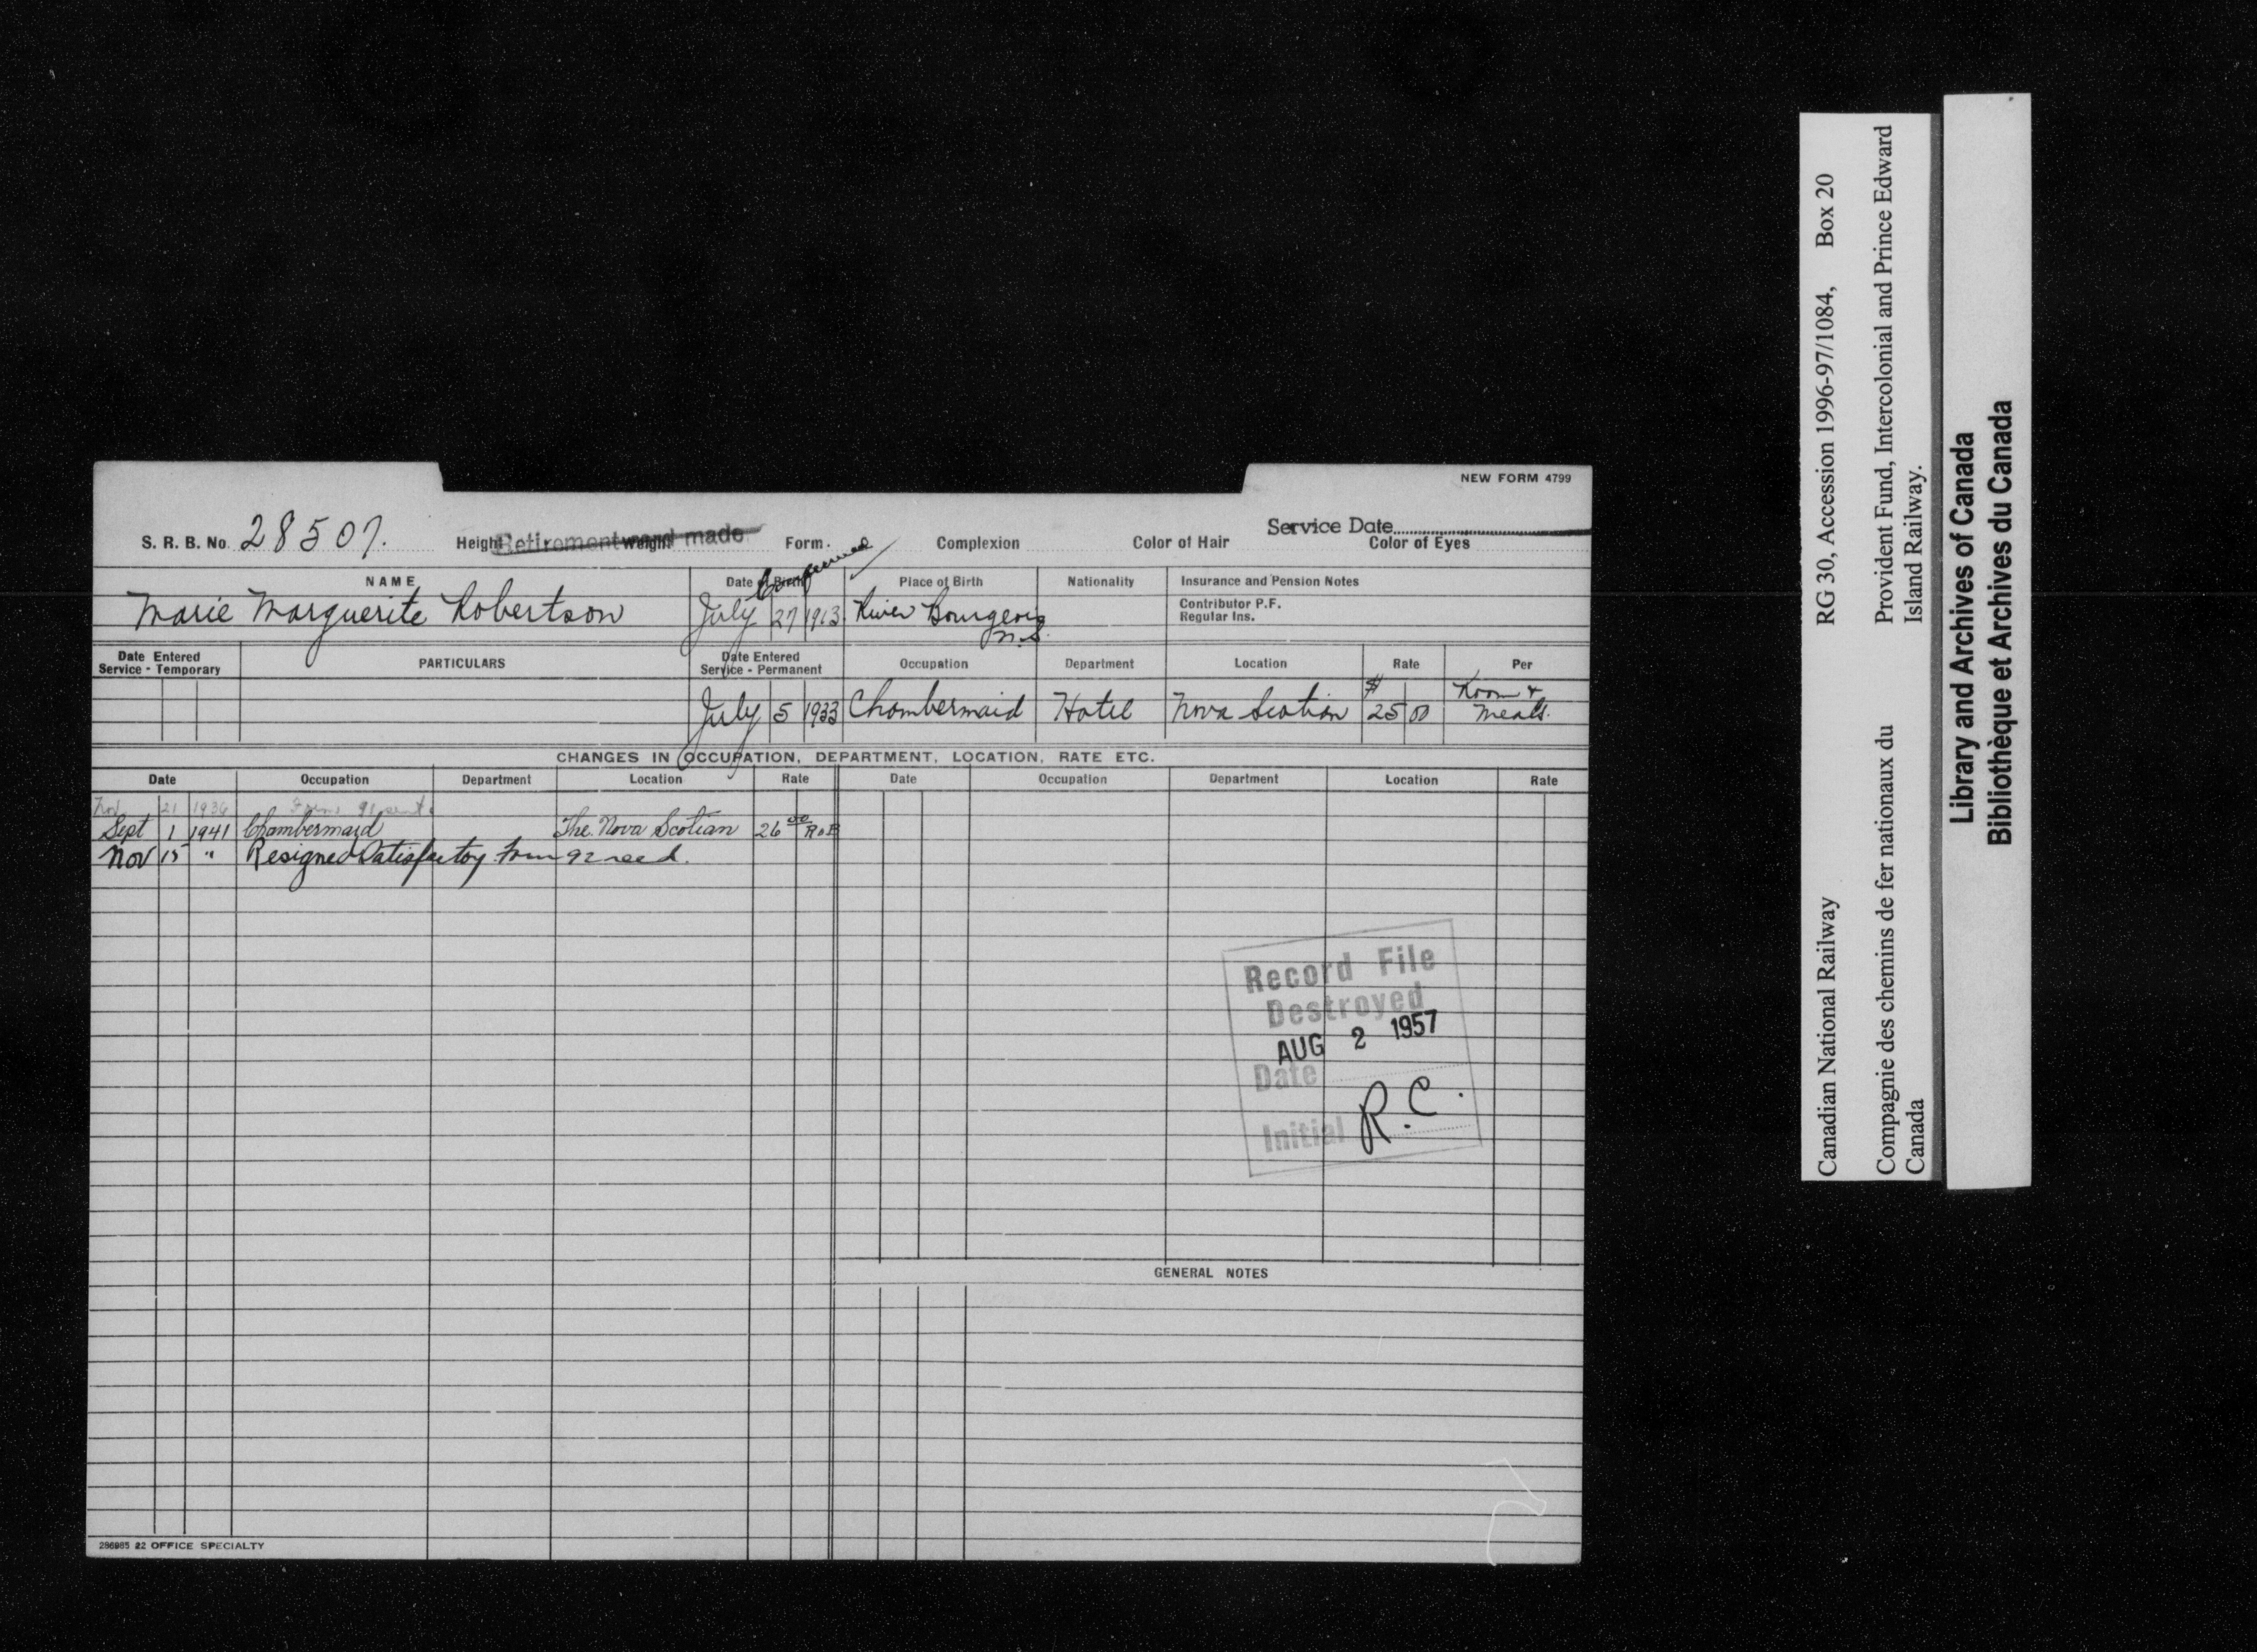 NEW FORM 4799
S. R. B. No. 28507. Height Retirement card made Weight Form. Complexion Color of Hair Service Date Color of Eyes
NAME Date of Birth Confirmed Place of Birth Nationality Insurance and Pension Notes
Marie Marguerite Robertson July 27 1913. River Bourgeois N.S. Contributor P.F.
Regular Ins.
Date Entered Service - Temporary PARTICULARS Date Entered Service - Permanent Occupation Department Location Rate Per
July 5 1933 Chambermaid Hotel Nova Scotian $ 25 00 Room & Meals.
CHANGES IN OCCUPATION, DEPARTMENT, LOCATION, RATE ETC.
Date Occupation Department Location Rate Date Occupation Department Location Rate
Nov 21 1936 Form 91 sent.
Sept 1 1941 Chambermaid The Nova Scotian 26 00 R & B
Nov 15 " Resigned Satisfactory Form 92 recd.
Record File
Destroyed
AUG 2 1957
Date
Initial R.C.
GENERAL NOTES
286985 22 OFFICE SPECIALTY
Canadian National Railway RG 30, Accession 1996-97/1084, Box 20
Compagnie des chemins de fer nationaux du Canada
Provident Fund, Intercolonial and Prince Edward Island Railway.
Library and Archives of Canada
Bibliothèque et Archives du Canada